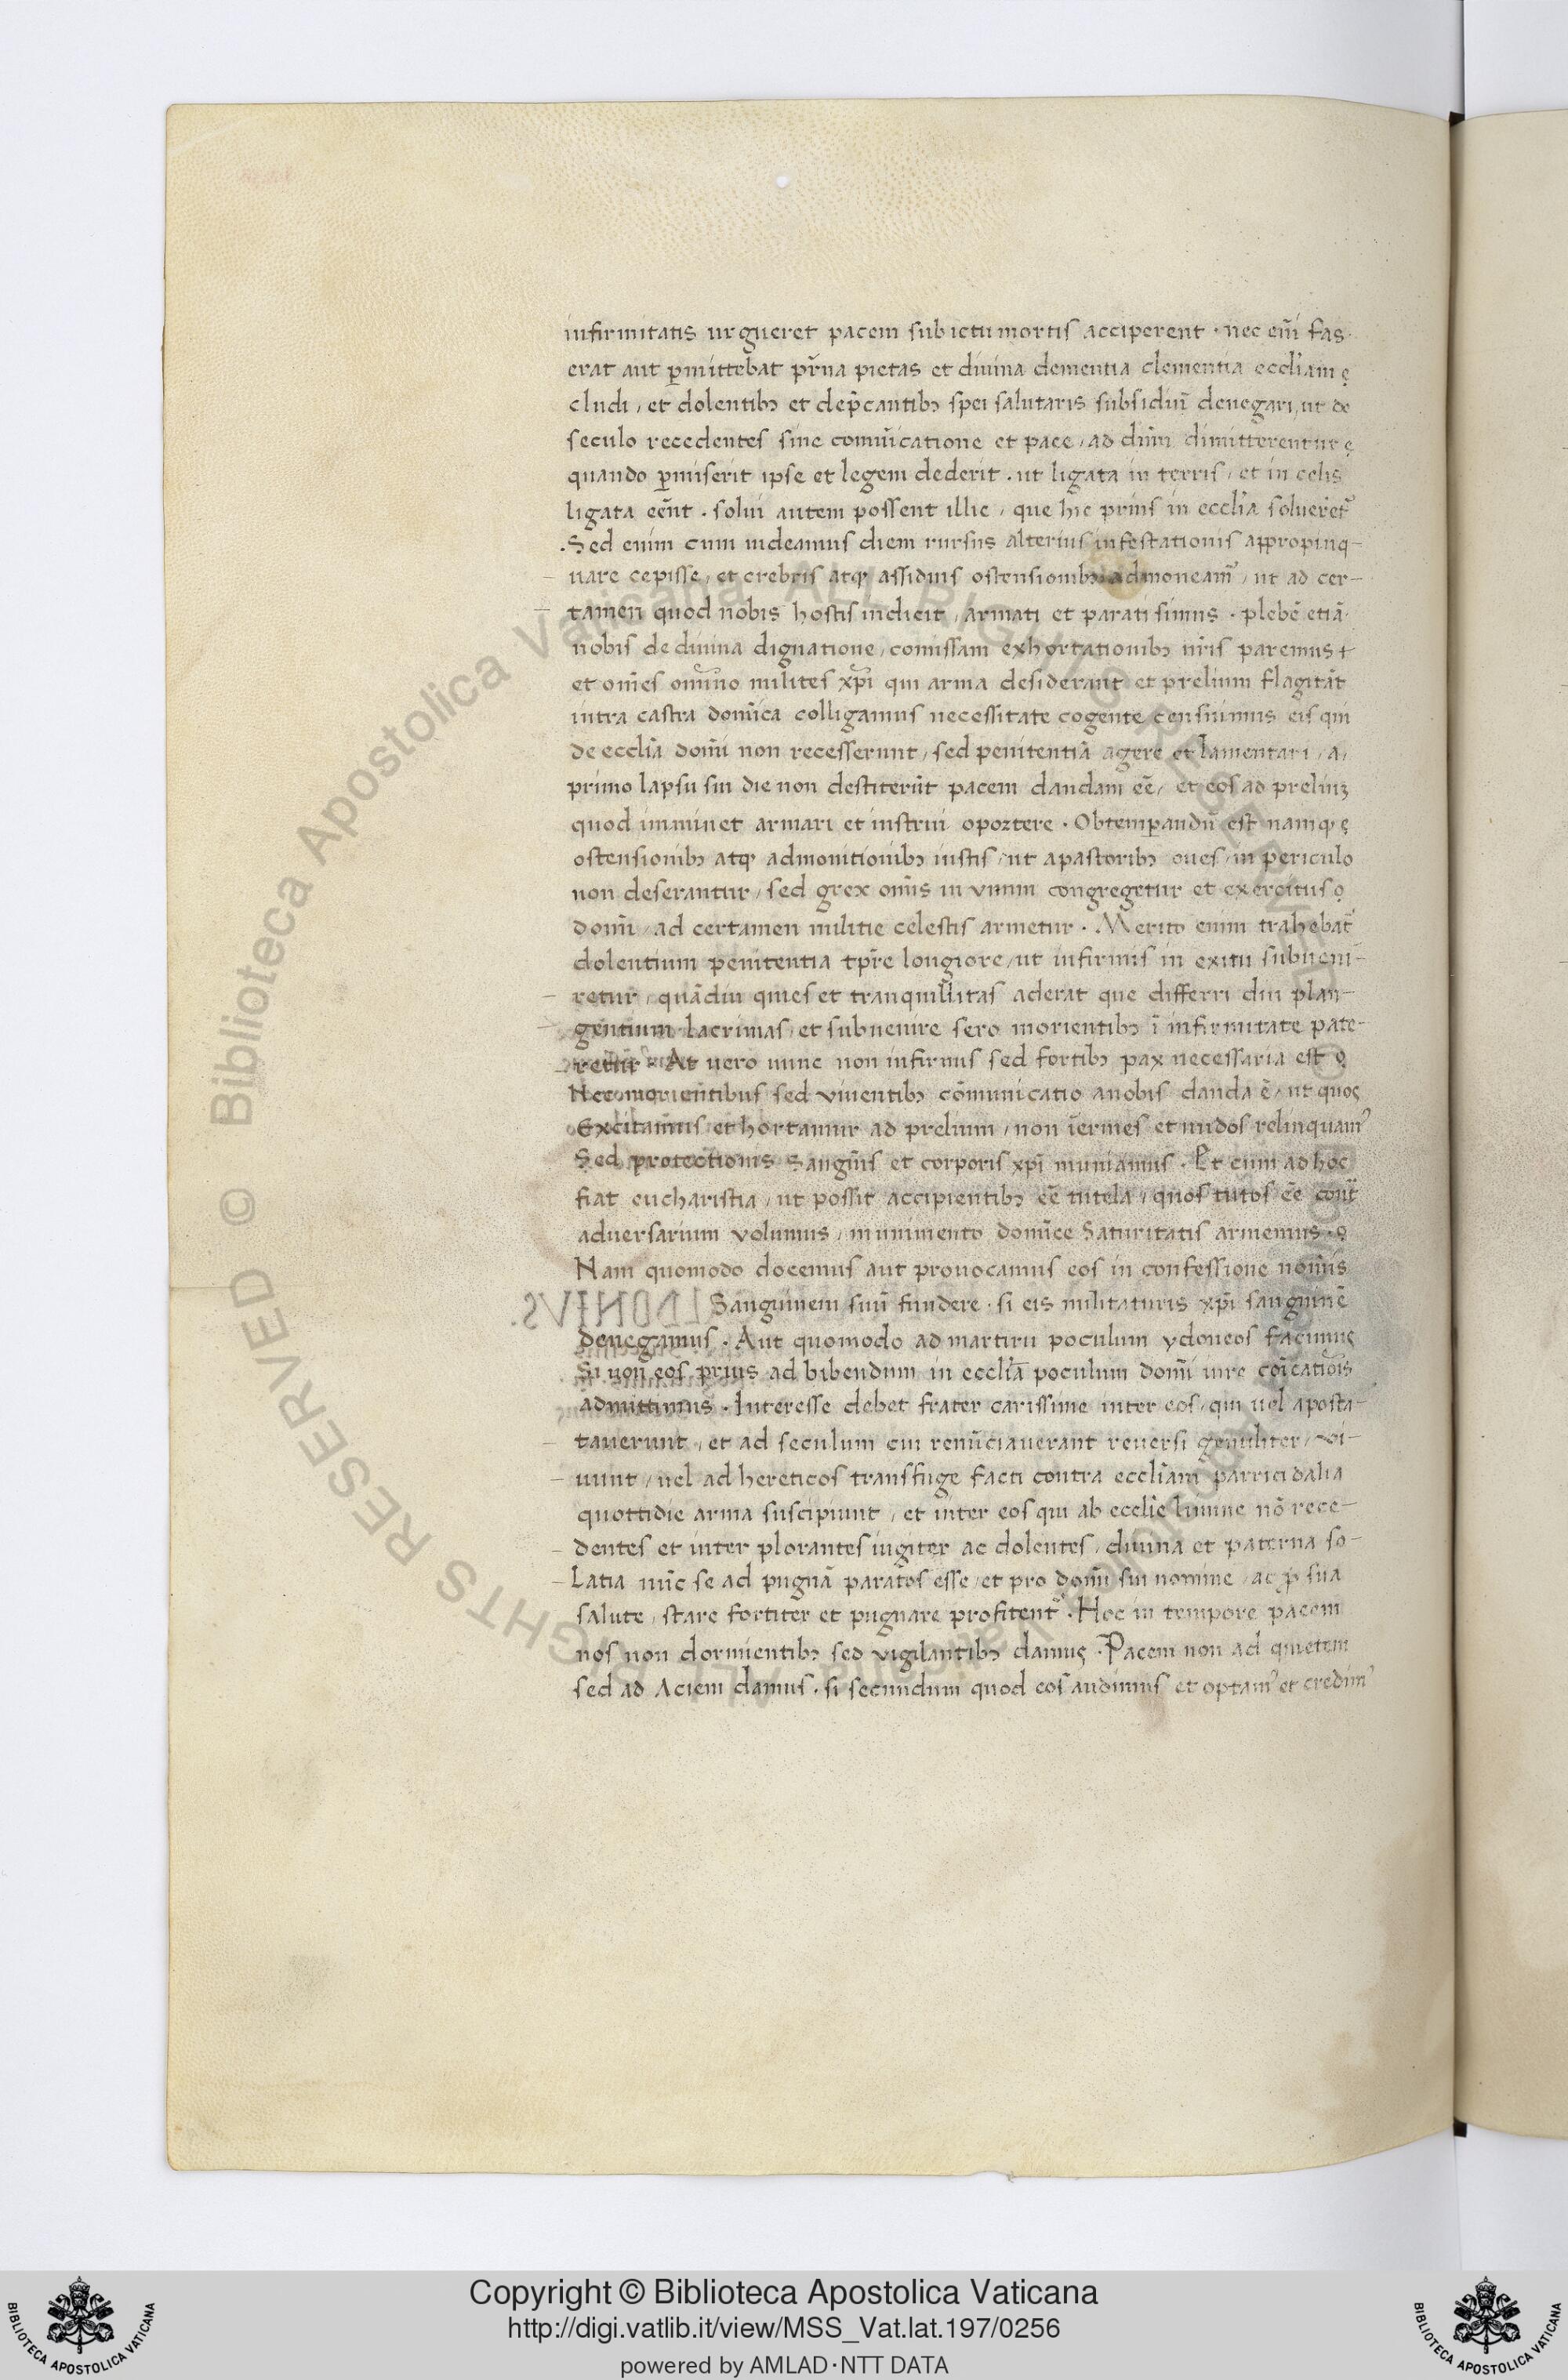 infirmitatis urgueret pacem sub ictu mortis acciperent · nec eni͂ fas·
erat aut ꝑmittebat pr̄na pietas et diuina dementia clementia eccl̄iam ę
cludi, et dolentibꝫ et dep̄cantibꝫ spei salutaris subsidiū denegari, ut de
seculo recedentes sine comūicatione et pace, ad dn̄m dimitterentur ę
quando ꝑmiserit ipse et legem dederit · ut ligata in terris, et in celis
ligata eēnt · solui autem possent illic, que hic prius in eccl̄ia soluerēt᷑
·Sed enim cum uideamus diem rursus alterius infestationis appropinq-
uare cepisse, et crebris atqꝫ assiduis ostensionibꝫ admoneam᷒, ut ad cer-
tamen quod nobis hostis indicit, armati et parati simus · plebē etiā·
nobis de diuina dignatione, comissam exhortationibꝫ nr̄is paremus +
et om̄es omīno milites xp̄i qui arma desiderant et prelium flagitāt
intra castra domīca colligamus necessitate cogente censuimus eis qui
de eccl̄ia domī non recesserunt, sed penitentiā agere et lamentari, a,
primo lapsu sui die non destiterūt pacem dandam eē, et eos ad preliuꝫ
quod imminet armari et instrui oportere · Obtemꝑandū est namqꝫ ę
ostensionibꝫ atqꝫ admonitionibꝫ iustis, ut apastoribꝫ oues, in periculo
non deserantur, sed grex om̄is in vnum congregetur et exercitus ꝯ
domī, ad certamen militie celestis armetur · Merito enim trahebat᷑
dolentium penitentia tpr̄e longiore, ut infirmis in exitu subueni-
retur, quādiu quies et tranquillitas aderat que differri diu plan-
gentium lacrimas, et subuenire sero morientibꝫ ī infirmitate pate-
retur · At uero nunc non infirmis sed fortibꝫ pax necessaria est ꝯ
Nec morientibus sed viuentibꝫ cōmunicatio anobis danda ē, ut quos
Excitamus et hortamur ad prelium, non īermes et nudos relinquam᷒
Sed protectionis Sanguīs et corporis xp̄i muniamus · Et cum ad hoc
fiat eucharistia, ut possit accipientibꝫ eē tutela, quos tutos eē cont̄
aduersarium volumus, munimento domīce Saturitatis armemus · ꝯ
Nam quomodo docemus aut prouocamus eos in confessione nomīs
Sanguinem suū fundere · si eis militaturis xp̄i sanguinē
denegamus · Aut quomodo ad martirii poculum ydoneos facimus
Si non eos prius ad bibendum in eccl̄ia poculum domī iure coīcatiōis
admittimus · Interesse debet frater carissime inter eos, qui uel aposta-
tauerunt, et ad seculum cui renūciauerant reuersi gentiliter, vi-
uunt, uel ad hereticos transfuge facti contra eccl̄iam parricidalia
quottidie arma suscipiunt, et inter eos qui ab eccl̄ie limine nō rece-
dentes et inter plorantes iugiter ac dolentes, diuina et paterna so-
Latia nūc se ad pugnā paratos esse, et pro domī sui nomine, ac ꝓ sua
salute, stare fortiter et pugnare profitent᷑ · Hoc in tempore pacem
nos non dormientibꝫ sed vigilantibꝫ damus · Pacem non ad quietem
sed ad Aciem damus · si secundum quod eos audimus et optam᷒ et credim᷒
Biblioteca Apostolica Vaticana ALL RIGHTS RESERVED ©
Copyright © Biblioteca Apostolica Vaticana
http://digi.vatlib.it/view/MSS_Vat.lat.197/0256
powered by AMLAD·NTT DATA
BIBLIOTECA APOSTOLICA VATICANA
BIBLIOTECA APOSTOLICA VATICANA